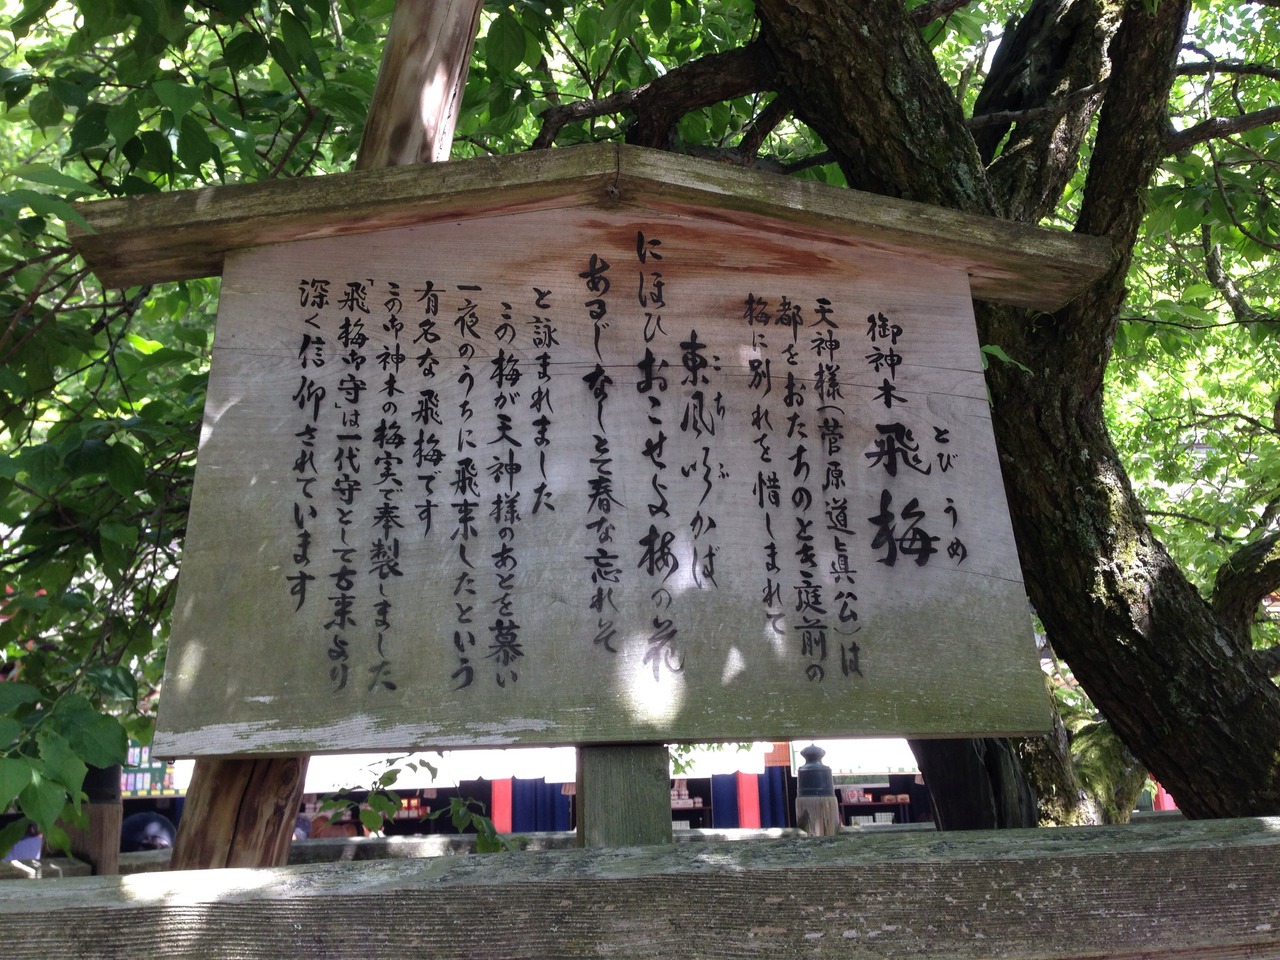 御神木 飛梅
とび うめ
天神様(菅原道眞公)は
都をおたちのとき庭前の
梅に別れを惜しまれて
東風吹かば
こち ふ
にほひおこせよ梅の花
あるじなしとて春な忘れそ
と詠まれました
この梅が天神様のあとを慕い
一夜のうちに飛来したという
有名な飛梅です
この御神木の梅実で奉製しました
「飛梅御守」は一代守として古来より
深く信仰されています